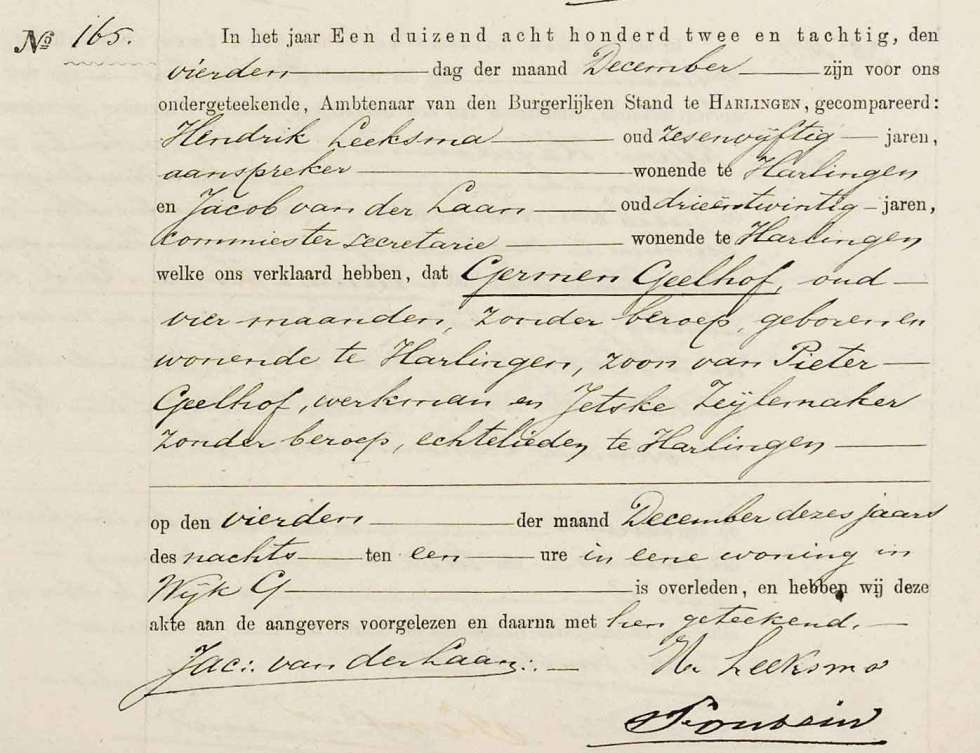 No 165. In het jaar Een duizend acht honderd twee en tachtig, den
vierden dag der maand December zijn voor ons
ondergeteekende, Ambtenaar van den Burgerlijken Stand te HARLINGEN, gecompareerd:
Hendrik Leeksma oud zesenvyftig jaren,
aanspreker wonende te Harlingen
en Jacob van der Laan oud drieëntwintig jaren,
commies ter secretarie wonende te Harlingen
welke ons verklaard hebben, dat Germen Geelhof, oud
vier maanden, zonder beroep, geboren en
wonende te Harlingen, zoon van Pieter
Geelhof, werkman en Jetske Zeijlemaker
zonder beroep, echtelieden te Harlingen
op den vierden der maand December dezes jaars
des nachts ten een ure in eene woning in
Wijk G is overleden, en hebben wij deze
akte aan de aangevers voorgelezen en daarna met hen geteekend.
Jac: van der Laan. Hk Leeksma